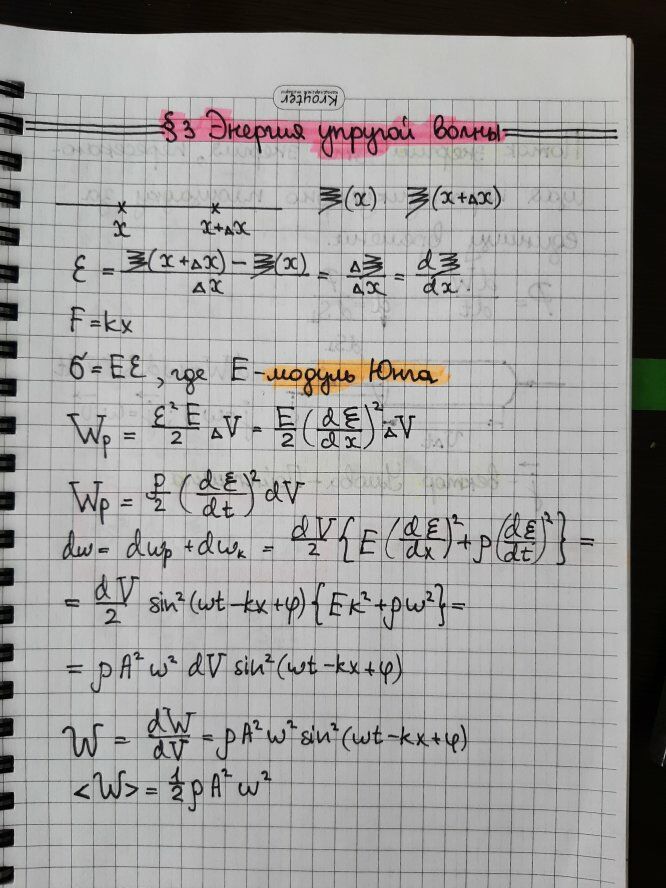 Kroyter
§3 Энергия упругой волны
x x+Δx ξ(x) ξ(x+Δx)
ε = ξ(x+Δx) − ξ(x) / Δx = Δξ/Δx = dξ/dx.
F = kx
σ = Eε, где E - модуль Юнга
Wp = ε²E/2 ΔV = E/2 (dξ/dx)² ΔV
Wp = ρ/2 (dξ/dt)² dV
dw = dwp + dwк = dV/2 {E(dξ/dx)² + ρ(dξ/dt)²} =
= dV/2 sin²(wt − kx + φ) {Ek² + ρw²} =
= ρA²w² dV sin²(wt − kx + φ)
W = dW/dV = ρA²w² sin²(wt − kx + φ)
<W> = 1/2 ρA²w²